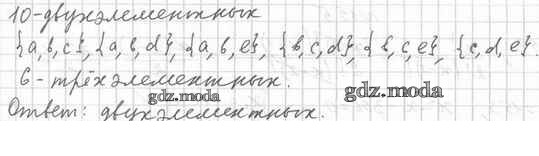 10-двухэлементных
{a,b,c}, {a,b,d}, {a,b,e}, {b,c,d}, {b,c,e}, {c,d,e}.
6-трёхэлементных.
gdz.moda
gdz.moda
Ответ: двухэлементных.